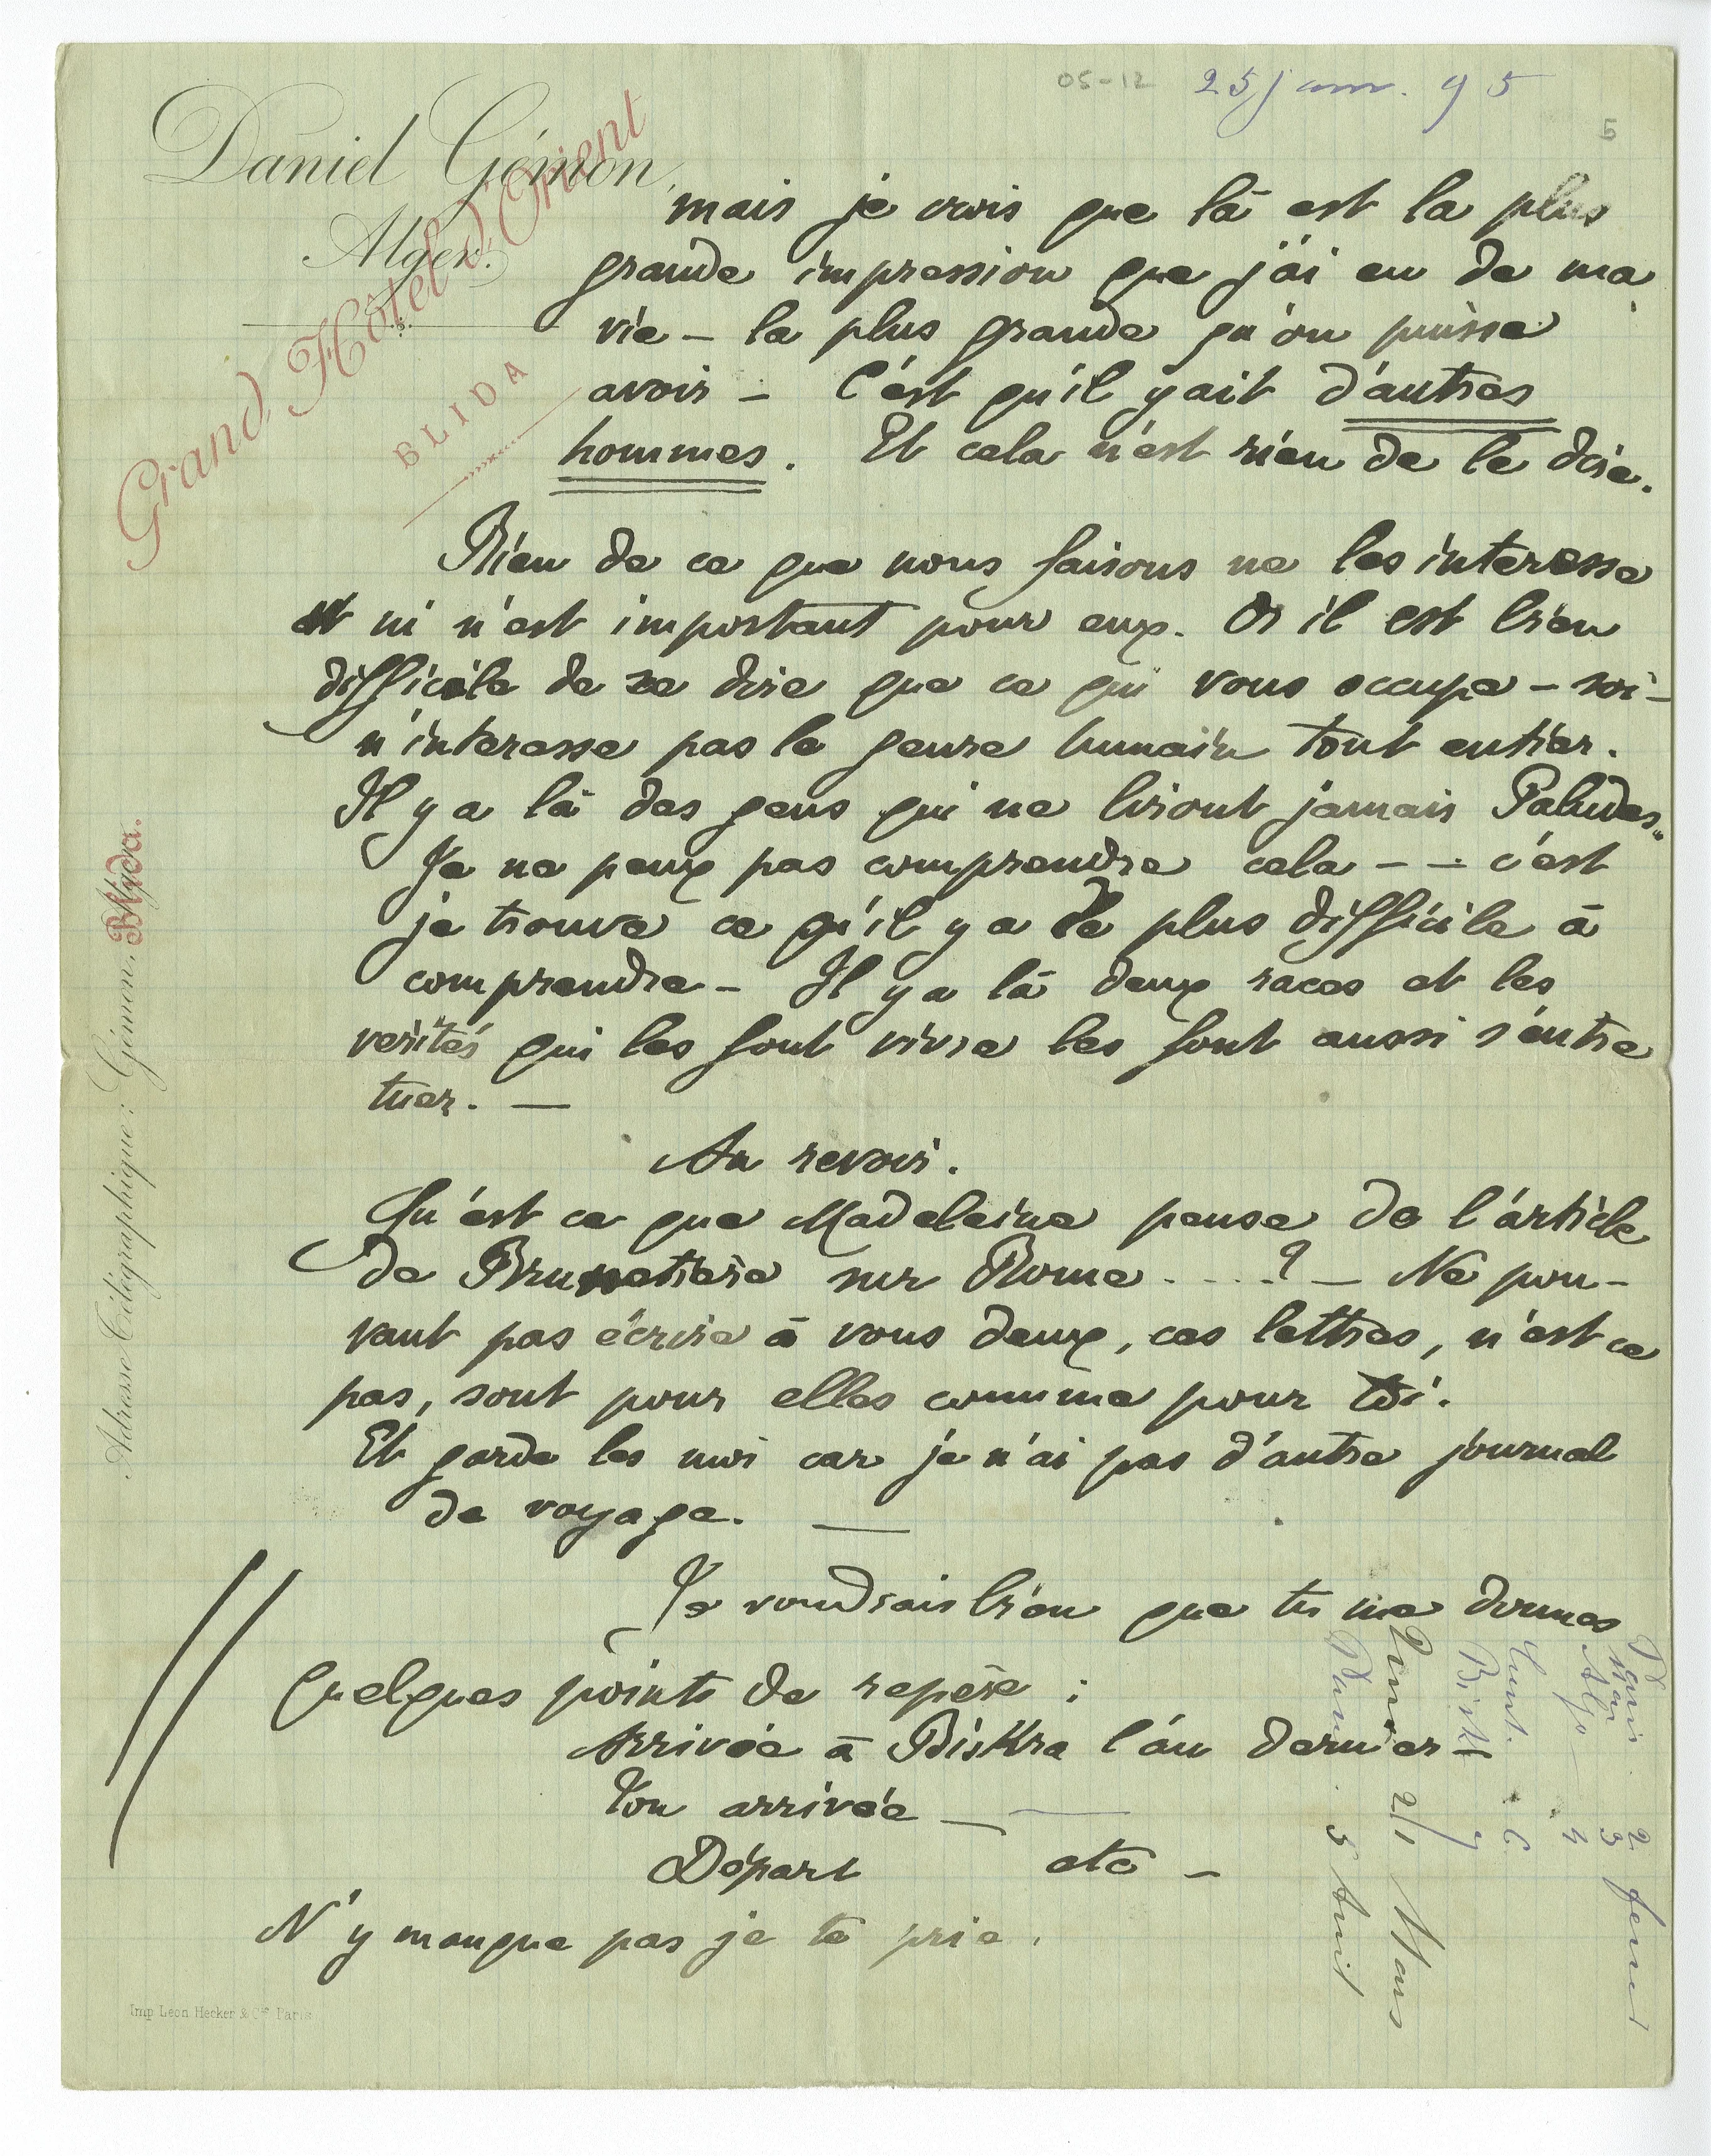 05-12 25 janv. 95
5
Daniel Gémon,
Alger.
Grand Hôtel d'Orient
BLIDA
mais je crois que là est la plus
grande impression que j'ai eu de ma
vie – la plus grande qu'on puisse
avoir – C'est qu'il y ait d'autres
hommes. Et cela n'est rien de le dire.
Rien de ce que nous faisons ne les interesse
et ni n'est important pour eux. Or il est bien
difficile de se dire que ce qui vous occupe – soi –
n'interesse pas le genre humain tout entier.
Il y a là des gens qui ne liront jamais Paludes.
Je ne peux pas comprendre cela – – c'est
je trouve ce qu'il y a de plus difficile à
comprendre – Il y a là deux races et les
verités qui les font vivre les font aussi s'entre
tuer. —
Au revoir.
Qu'est ce que Madeleine pense de l'article
de Brunetiere sur Rome . . . . ? – Ne pou-
vant pas écrire à vous deux, ces lettres, n'est ce
pas, sont pour elles comme pour toi.
Et garde les moi car je n'ai pas d'autre journal
de voyage. —
Je voudrais bien que tu me donnes
quelques points de repère :
Arrivée à Biskra l'an dernier –
Ton arrivée — —
Départ etc –
N'y manque pas je te prie.
Adresse Télégraphique: Gémon. Blida.
Paris 2 fevrier
Mars 3
Alger 4
Const. 6
Bisk 7
21 Mars
Paris 5 Avril
Imp Leon Hecker & Cie Paris